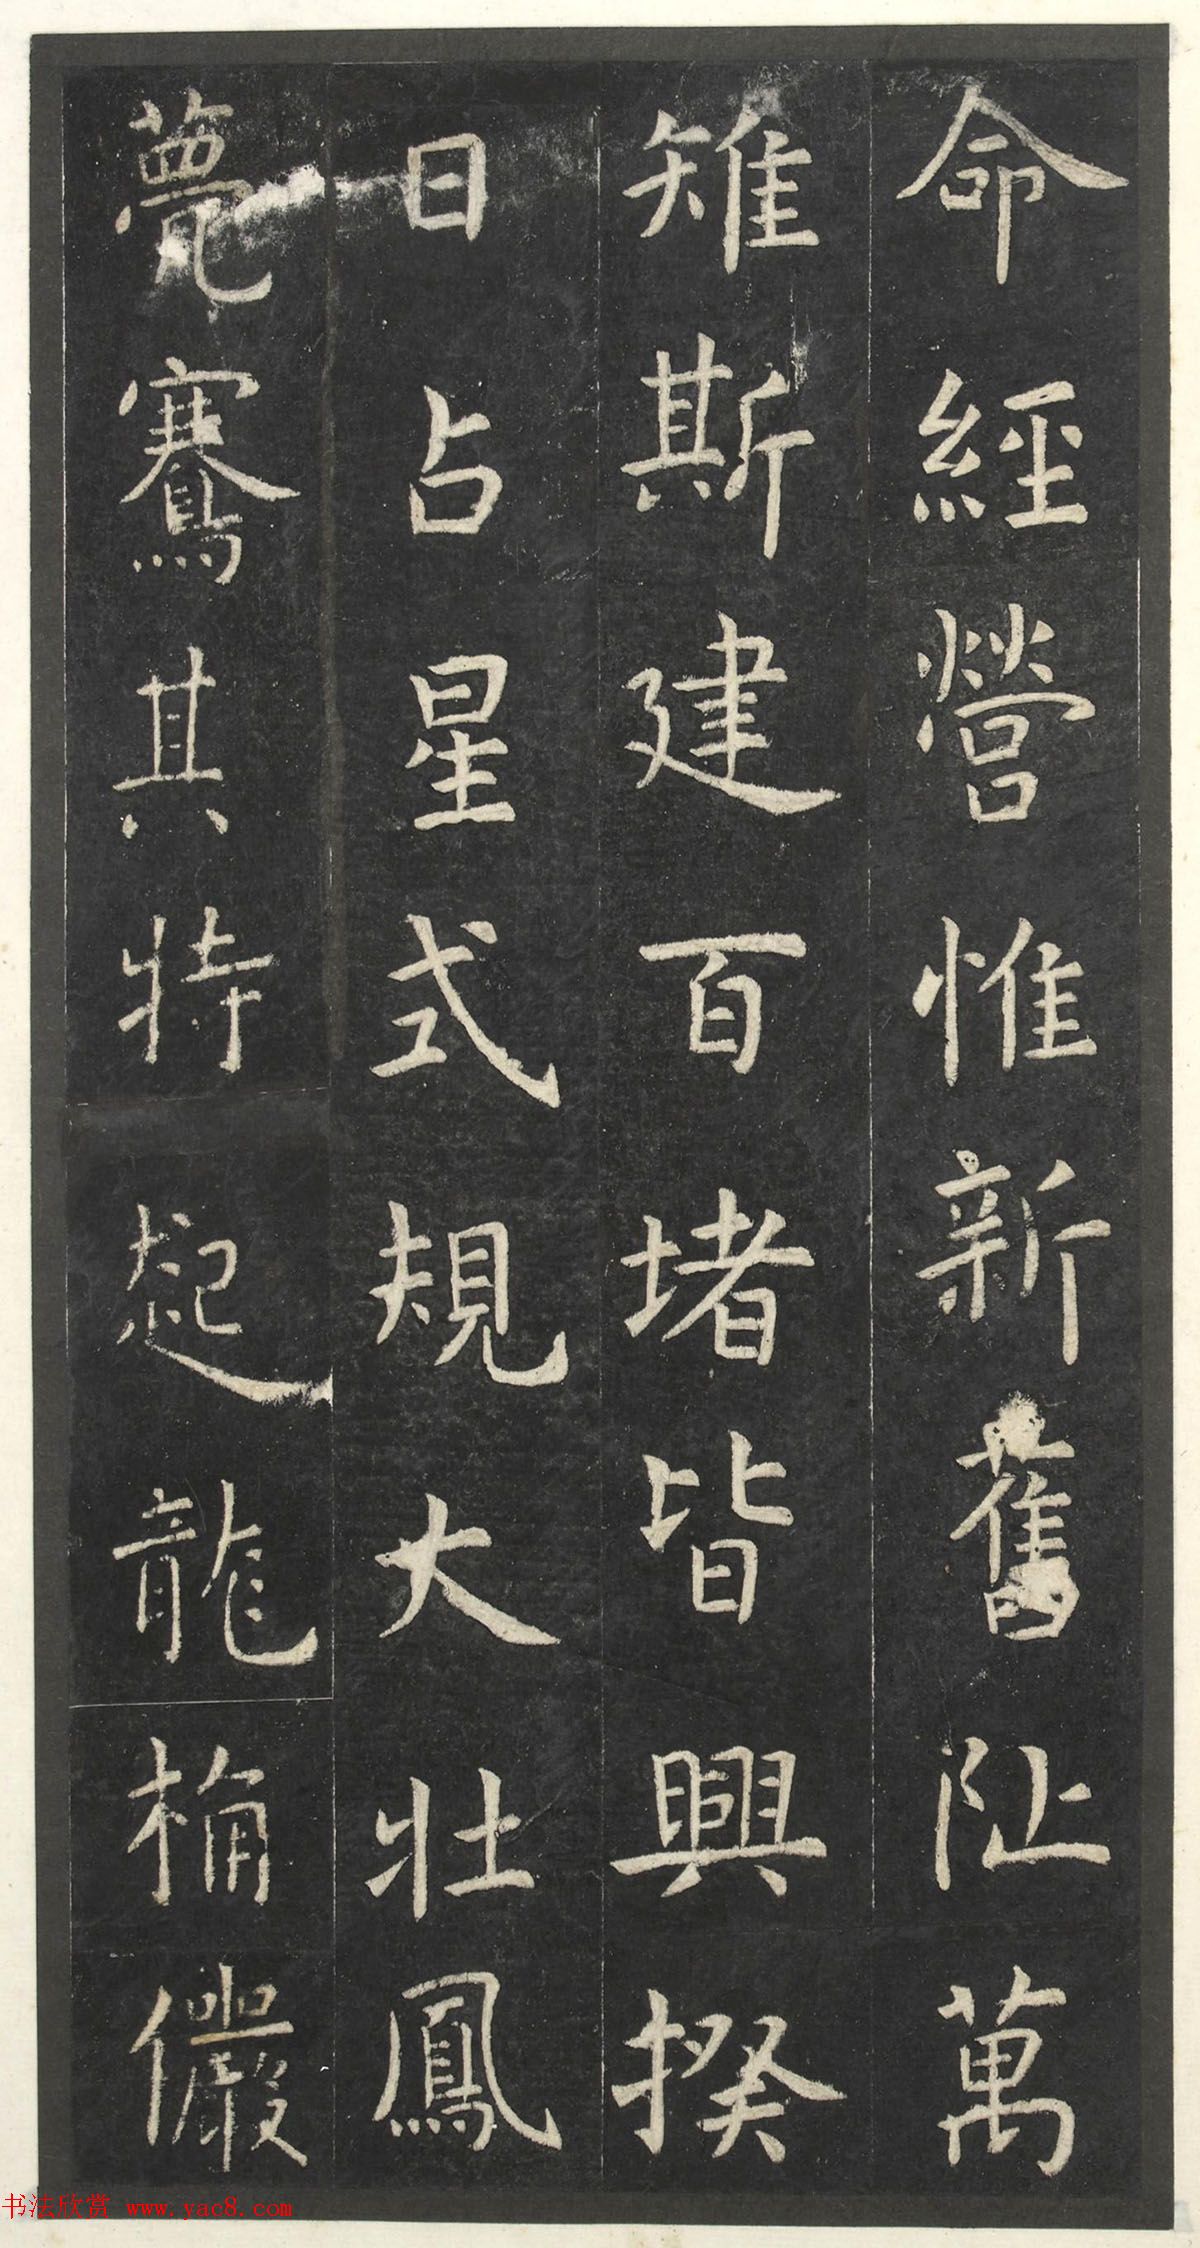 命經營惟新舊阯萬
雉斯建百堵皆興揆
日占星式規大壯鳳
甍騫其特起龍桷儼
书法欣赏 www.yac8.com